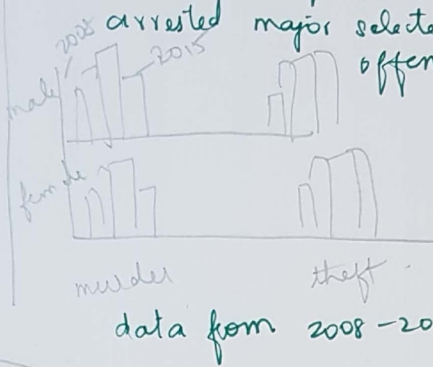 arrested major selecte
offen
2008
2015
male
female
murder
theft
data from 2008-20